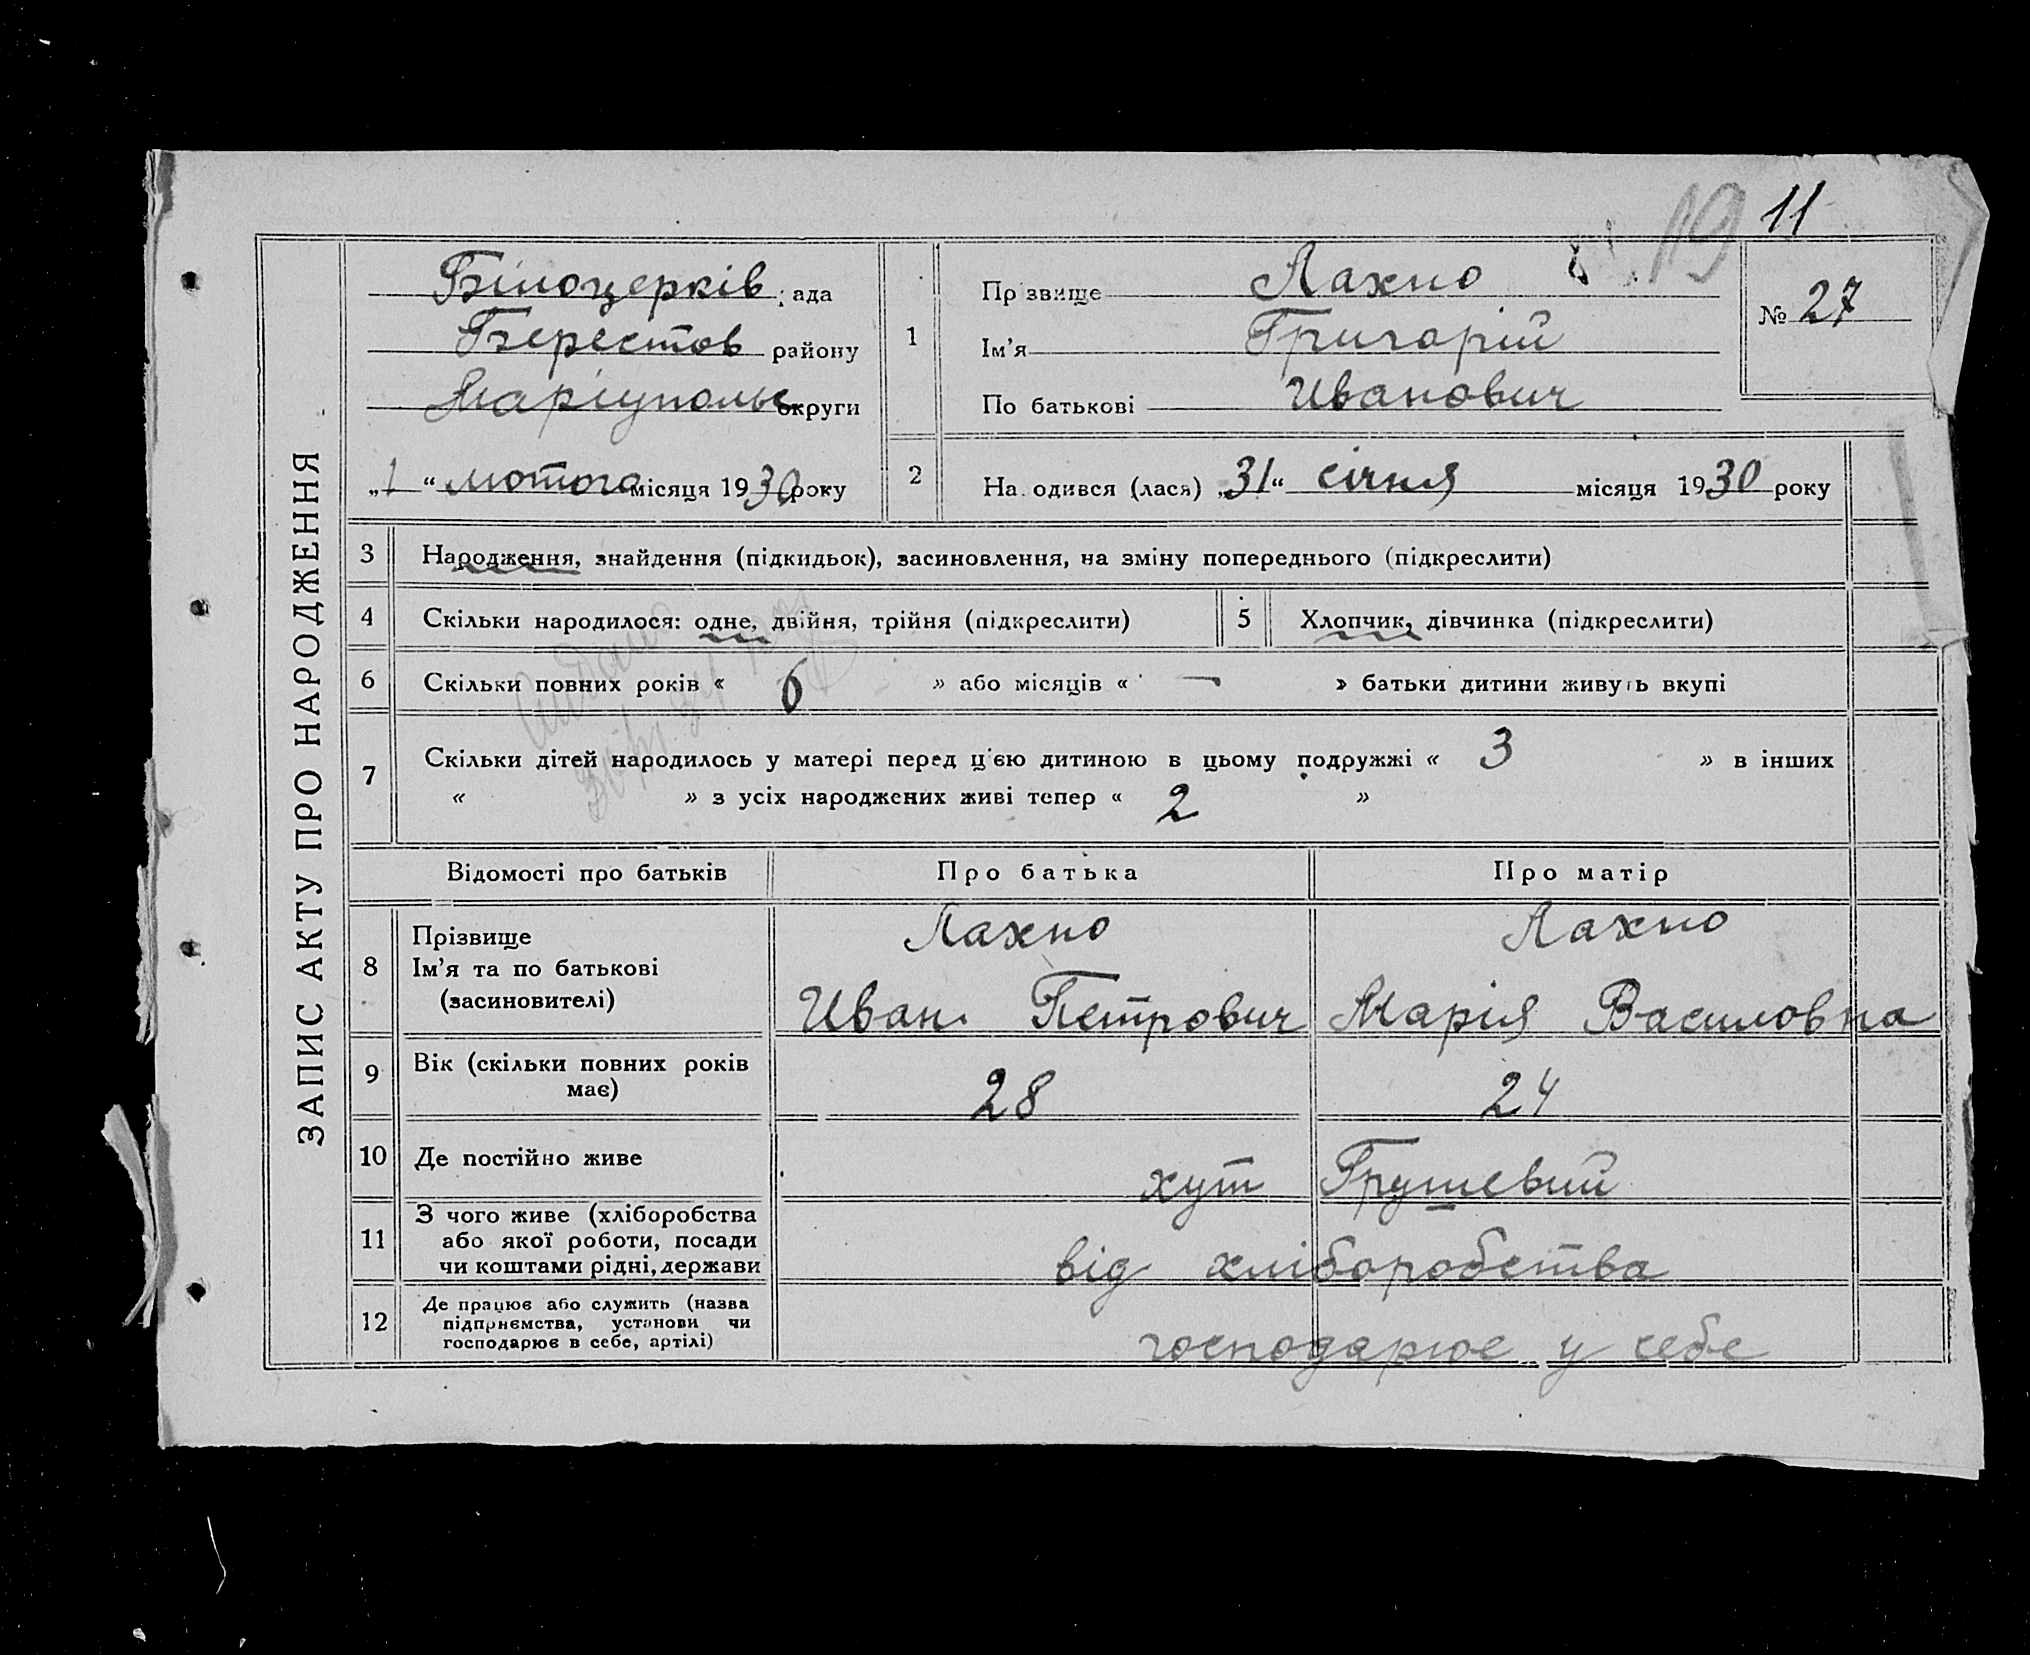 19 11
ЗАПИС АКТУ ПРО НАРОДЖЕННЯ
Білоцерків рада
Берестов району
Маріупольс округи
„1“ лютого місяця 1930 року
1
Прізвище Лахно
Ім’я Григорій
По батькові Иванович
№ 27
2 Народився (лася) „31“ січня місяця 1930 року
3 Народження, знайдення (підкидьок), засиновлення, на зміну попереднього (підкреслити)
4 Скільки народилося: одне, двійня, трійня (підкреслити) 5 Хлопчик, дівчинка (підкреслити)
6 Скільки повних років « 6 » або місяців « — » батьки дитини живуть вкупі
7 Скільки дітей народилось у матері перед ц'єю дитиною в цьому подружжі « 3 » в інших
« » з усіх народжених живі тепер « 2 »
Відомості про батьків Про батька Про матір
8 Прізвище Лахно Лахно
Ім’я та по батькові
(засиновителі) Иван Петрович Марія Василовна
9 Вік (скільки повних років
має) 28 24
10 Де постійно живе хут Грушевий
11 З чого живе (хліборобства
або якої роботи, посади
чи коштами рідні, держави від хліборобства
12 Де працює або служить (назва
підприємства, установи чи
господарює в себе, артілі) господарює у себе